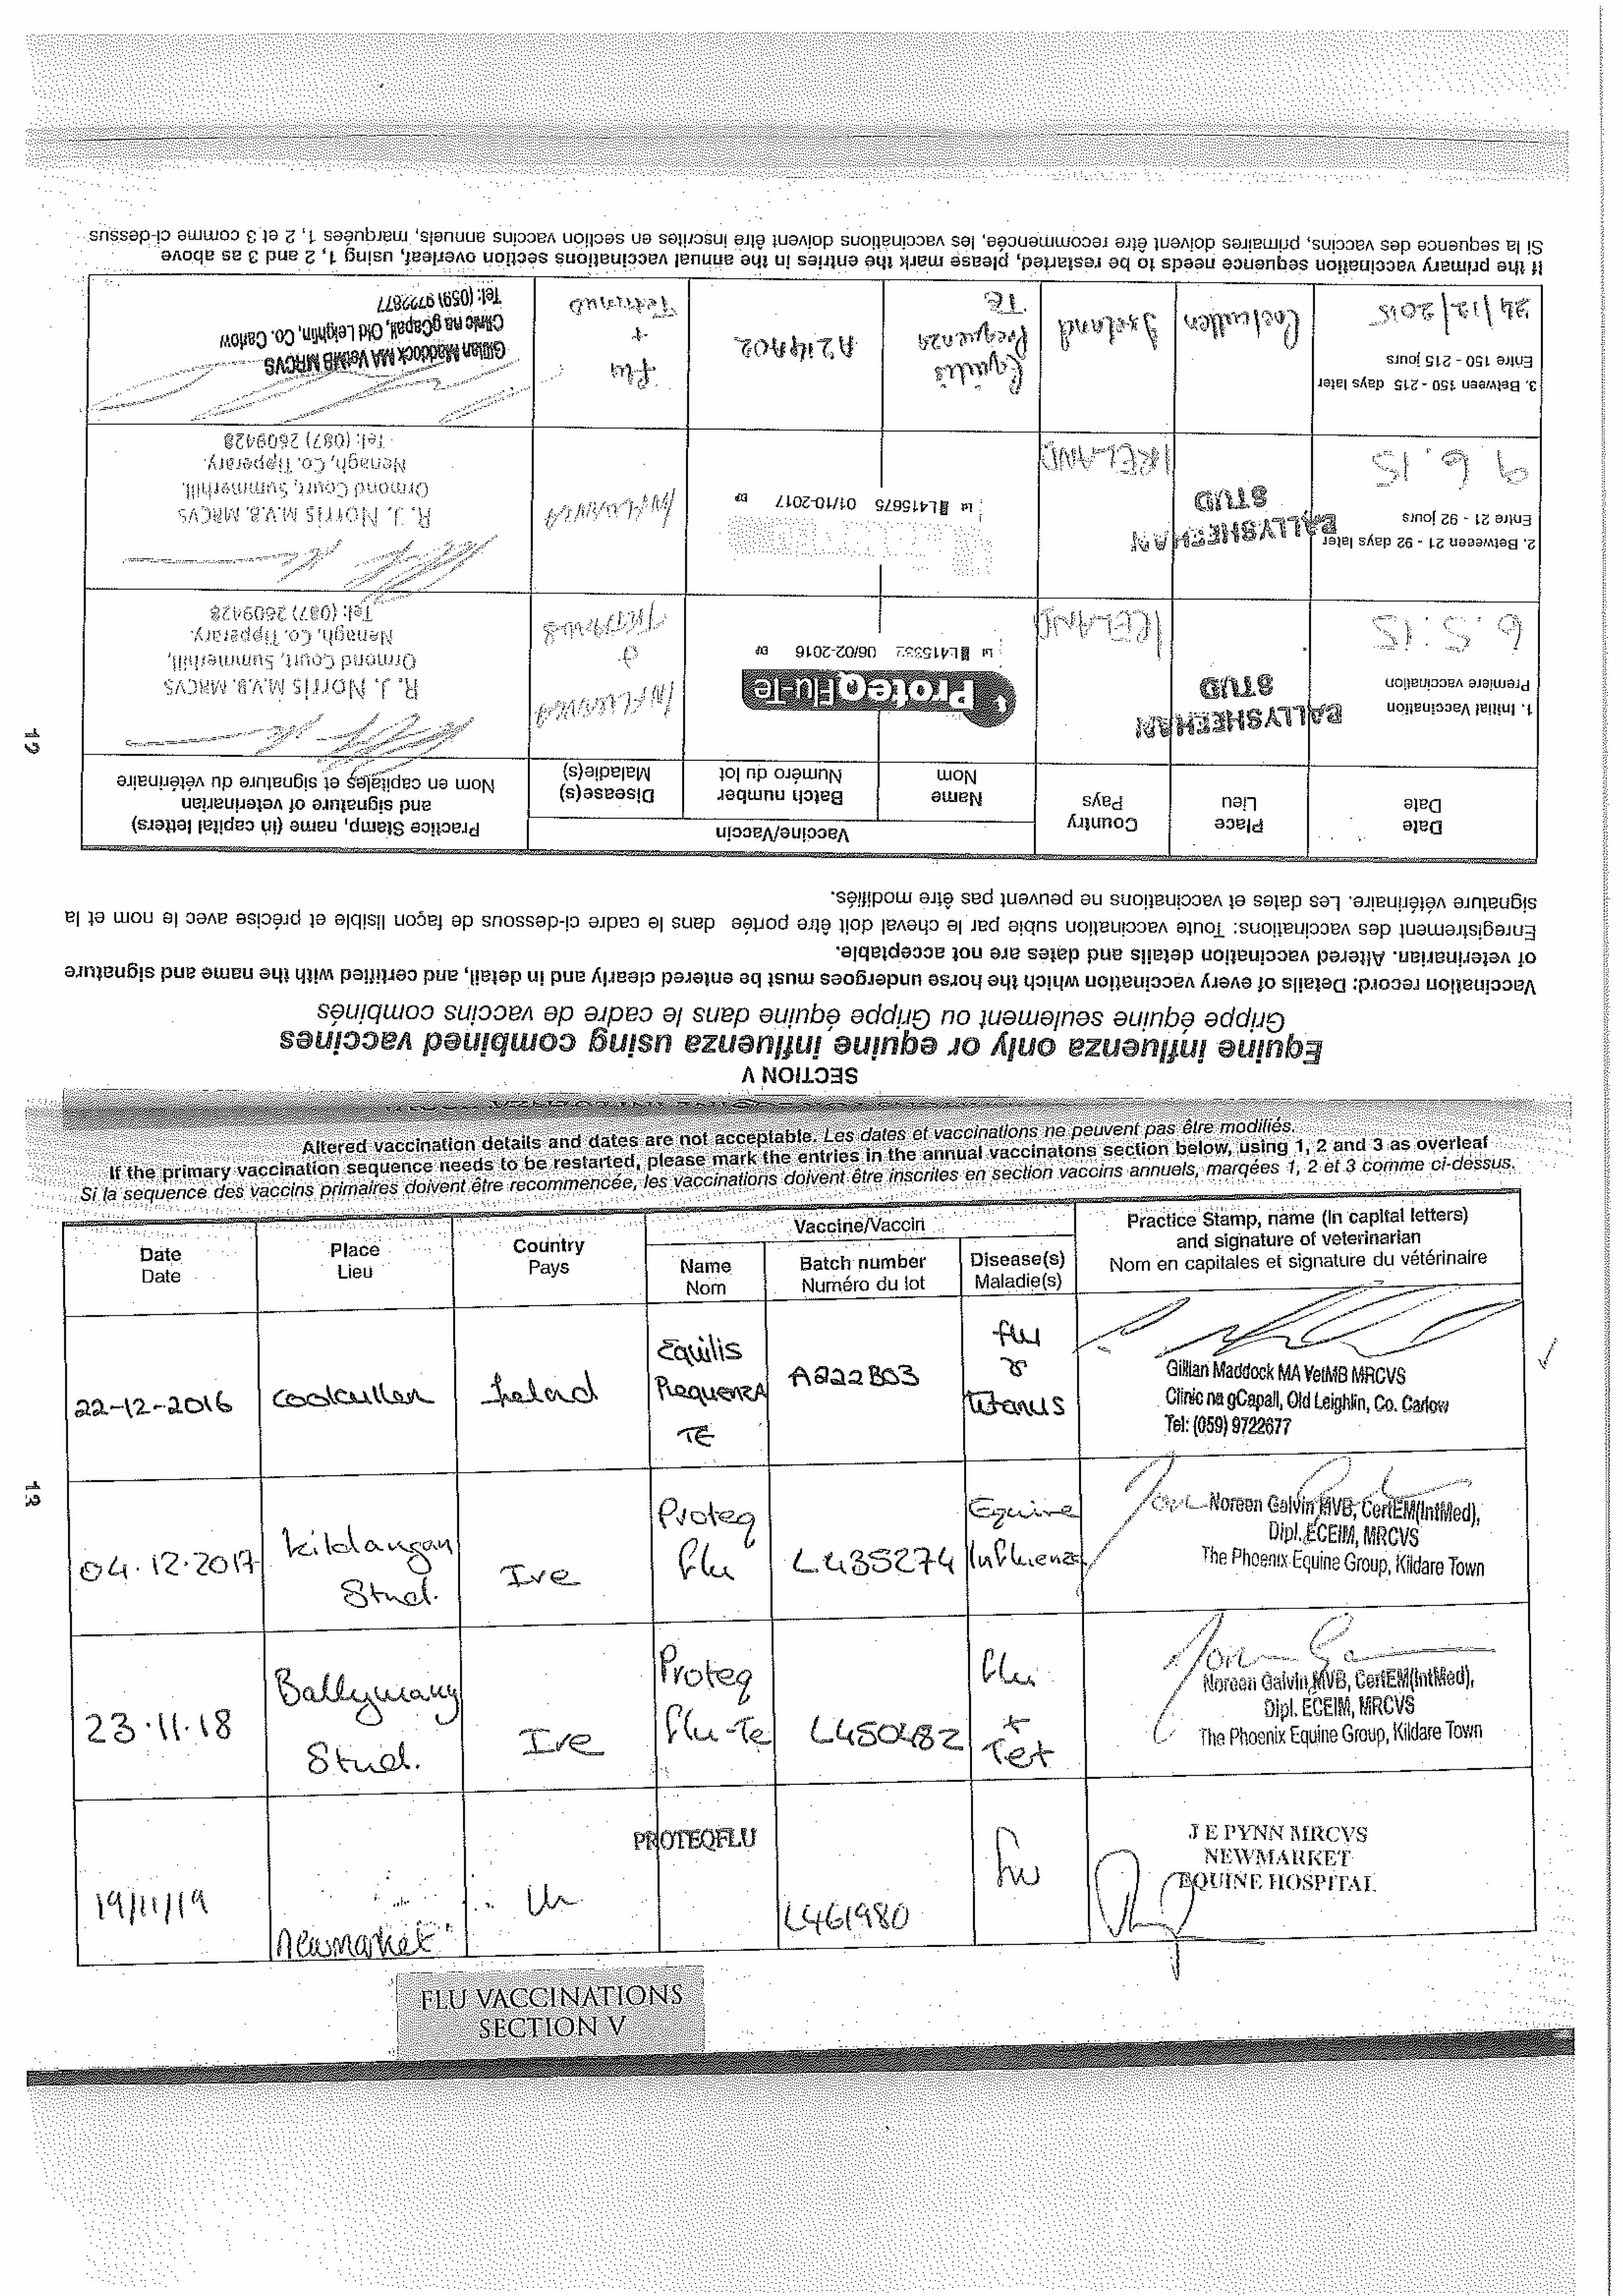 12
SECTION V
Equine influenza only or equine influenza using combined vaccines
Grippe équine seulement ou Grippe équine dans le cadre de vaccins combinés
Vaccination record: Details of every vaccination which the horse undergoes must be entered clearly and in detail, and certified with the name and signature
of veterinarian. Altered vaccination details and dates are not acceptable.
Enregistrement des vaccinations: Toute vaccination subie par le cheval doit être portée dans le cadre ci-dessous de façon lisible et précise avec le nom et la
signature vétérinaire. Les dates et vaccinations ne peuvent pas être modifiés.
Date
Date
Place
Lieu
Country
Pays
Vaccine/Vaccin
Name
Nom
Batch number
Numéro du lot
Disease(s)
Maladie(s)
Practice Stamp, name (in capital letters)
and signature of veterinarian
Nom en capitales et signature du vétérinaire
1. Initial Vaccination
Premiere vaccination
6.5.15
BALLYSHEEHAN
STUD
IRELAND
ProteqFlu-Te
Lot L415332 06/02-2016 EXP
INFLUENZA
&
TETANUS
R. J. Norris M.V.B. MRCVS
Ormond Court, Summerhill,
Nenagh, Co. Tipperary.
Tel: (087) 2609428
2. Betweeen 21 - 92 days later
Entre 21 - 92 jours
9 6.15
BALLYSHEEHAN
STUD
IRELAND
Lot L415675 01/10-2017 EXP
INFLUENZA
R. J. Norris M.V.B. MRCVS
Ormond Court, Summerhill,
Nenagh, Co. Tipperary.
Tel: (087) 2609428
3. Between 150 - 215 days later
Entre 150 - 215 jours
24/12/2015
Coolcullen
Ireland
Equilis
Prequenza
TE
A214A02
Flu
+
Tetanus
Gillian Maddock MA VetMB MRCVS
Clinic na gCapall, Old Leighlin, Co. Carlow
Tel: (059) 9722677
If the primary vaccination sequence needs to be restarted, please mark the entries in the annual vaccinations section overleaf, using 1, 2 and 3 as above
Si la sequence des vaccins, primaires doivent être recommencée, les vaccinations doivent être inscrites en section vaccins annuels, marquées 1, 2 et 3 comme ci-dessus
13
Altered vaccination details and dates are not acceptable. Les dates et vaccinations ne peuvent pas être modifiés.
If the primary vaccination sequence needs to be restarted, please mark the entries in the annual vaccinatons section below, using 1, 2 and 3 as overleaf
Si la sequence des vaccins primaires doivent être recommencée, les vaccinations doivent être inscriles en section vaccins annuels, marqées 1, 2 et 3 comme ci-dessus.
Date
Date
Place
Lieu
Country
Pays
Vaccine/Vaccin
Name
Nom
Batch number
Numéro du lot
Disease(s)
Maladie(s)
Practice Stamp, name (in capital letters)
and signature of veterinarian
Nom en capitales et signature du vétérinaire
22-12-2016
Coolcullen
Ireland
Equilis
Prequenza
TE
A222B03
flu
&
tetanus
Gillian Maddock MA VetMB MRCVS
Clinic na gCapall, Old Leighlin, Co. Carlow
Tel: (059) 9722677
04.12.2017
Kildangan
Stud.
Ire
Proteq
flu
L435274
Equine
Influenza
Noreen Galvin MVB, CertEM(IntMed),
Dipl. ECEIM, MRCVS
The Phoenix Equine Group, Kildare Town
23.11.18
Ballymany
Stud.
Ire
Proteq
flu-Te
L450482
flu
+
Tet
Noreen Galvin MVB, CertEM(IntMed),
Dipl. ECEIM, MRCVS
The Phoenix Equine Group, Kildare Town
19/11/19
Newmarket
UK
PROTEQFLU
L461980
flu
J E PYNN MRCVS
NEWMARKET
EQUINE HOSPITAL
FLU VACCINATIONS
SECTION V